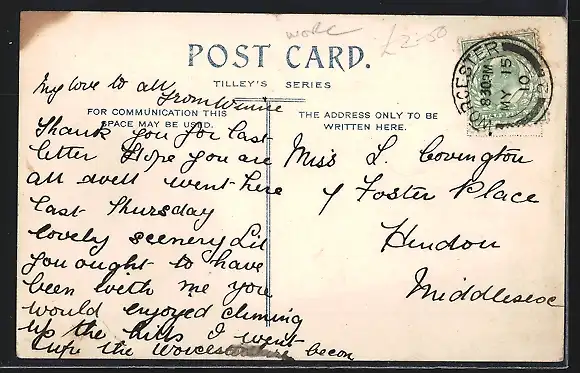 worc
£2-50
POST CARD.
TILLEY'S SERIES
FOR COMMUNICATION THIS
SPACE MAY BE USED.
THE ADDRESS ONLY TO BE
WRITTEN HERE.
WORCESTER
8.30 PM
MY 15
10
My love to all
From Winnie
Thank you for last
letter Hope you are
all well went here
last Thursday
lovely scenery Lil
you ought to have
been with me you
would enjoyed climing
up the hills I went
up the Worcestershire becon
Miss L. Covington
4 Foster Place
Hendon
Middlesex